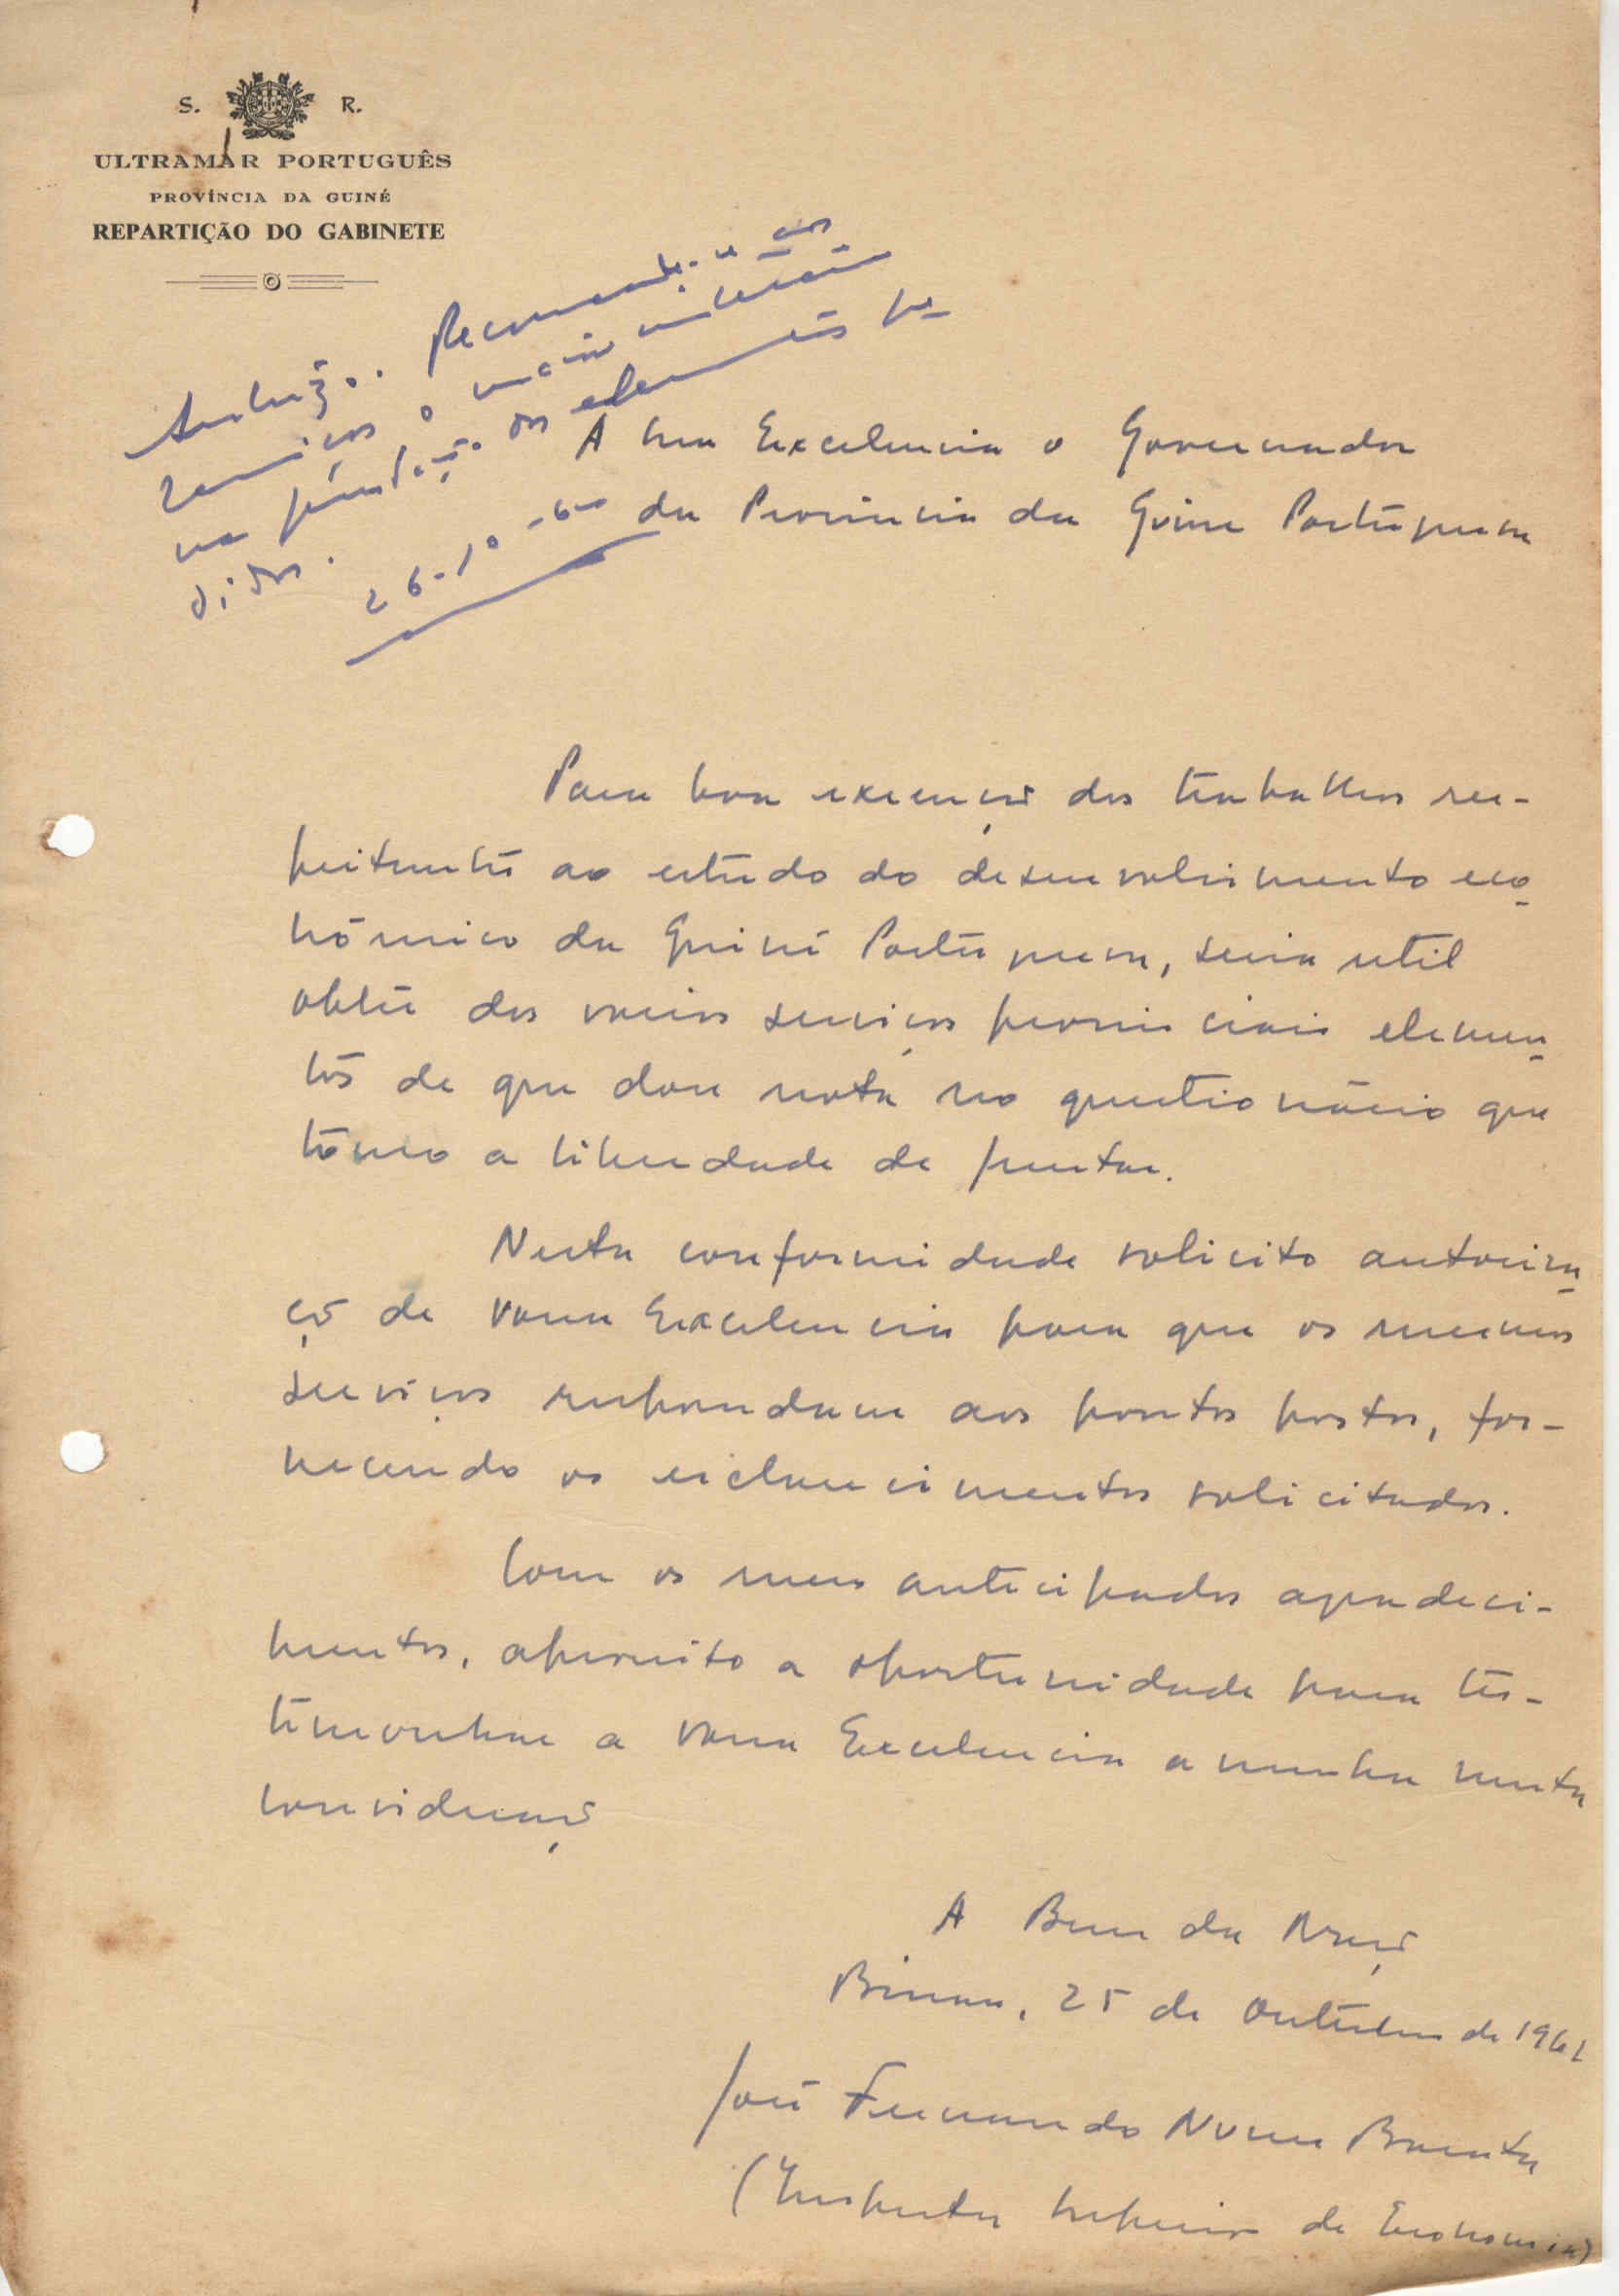 S. R.
ULTRAMAR PORTUGUÊS
PROVÍNCIA DA GUINÉ
REPARTIÇÃO DO GABINETE
Autorizo. Recomende-se aos
serviços o maior interesse
na prestação dos elementos pe-
didos.
26-10-
A Sua Excelencia o Governador
da Provincia da Guine Portuguesa
Para boa execução dos trabalhos res-
peitantes ao estudo do desenvolvimento eco
nómico da Guiné Portuguesa, seria util
obter dos varios serviços provinciais elemen
tos de que dou nota no questionário que
tomo a liberdade de juntar.
Nesta conformidade solicito autoriza
ção de Vossa Excelencia para que os mesmos
serviços respondam aos pontos postos, for-
necendo os esclarecimentos solicitados.
Com os meus antecipados agradeci-
mentos, aproveito a oportunidade para tes-
temunhar a Vossa Excelencia a minha muita
consideração
A Bem da Nação
Bissau, 25 de Outubro de 196
José Fernando Nunes Barata
(Inspector Superior de Economia)